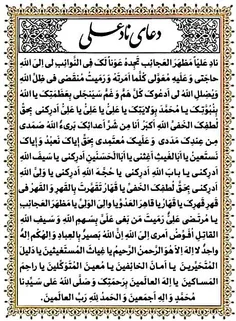 دعای ناد علی
نادِ عَلیّاً مَظهَرَ العَجائِبِ تَجِدهُ عَوناً لَکَ فِی النَّوائِبِ لی اِلَی اللهِ
حاجَتی وَ عَلَیهِ مُعَوَّلی کُلَّما اَمَرتَهُ وَ رَمَیتُ مُنقَضی فی ظِلِّ اللهِ
وَ یُضلِلِ اللهُ لی اَدعُوکَ کُلَّ هَمٍّ وَ غَمٍّ سَیَنجَلی بِعَظَمَتِکَ یا اللهُ
بِنُبُوَّتِکَ یا مُحَمَّدُ بِوَلایَتِکَ یا عَلِیُّ یا عَلِیُّ یا عَلِیُّ اَدرِکنی بِحَقِّ
لُطفِکَ الخَفِیِّ اللهُ اَکبَرُ اَنَا مِن شَرِّ اَعدائِکَ بَریءٌ اَللهُ صَمَدی
مِن عِندِکَ مَدَدی وَ عَلَیکَ مُعتَمَدی بِحَقِّ اِیّاکَ نَعبُدُ وَ اِیّاکَ
نَستَعینُ یا اَبَا الغَیثِ اَغِثنی یا اَبَا الحَسَنَینِ اَدرِکنی یا سَیفَ اللهِ
اَدرِکنی یا بابَ اللهِ اَدرِکنی یا حُجَّةَ اللهِ اَدرِکنی یا وَلِیَّ اللهِ
اَدرِکنی بِحَقِّ لُطفِکَ الخَفِیِّ یا قَهّارُ تَقَهَّرتَ بِالقَهرِ وَ القَهرُ فی
قَهرِ قَهرِکَ یا قَهّارُ یا قاهِرَ العَدُوِّ یا والِیَ الوَلِیِّ یا مَظهَرَ العَجائِبِ
یا مُرتَضی عَلِیُّ رَمَیتَ مَن بَغی عَلَیَّ بِسَهمِ اللهِ وَ سَیفِ اللهِ
القاتِلِ اُفَوِّضُ اَمری اِلَی اللهِ اِنَّ اللهَ بَصیرٌ بِالعِبادِ وَ اِلهُکُم اِلهٌ
واحِدٌ لا اِلهَ اِلّا هُوَ الرَّحمنُ الرَّحیمُ یا غِیاثَ المُستَغیثینَ یا دَلیلَ
المُتَحَیِّرینَ یا اَمانَ الخائِفینَ یا مُعینَ المُتَوَکِّلینَ یا راحِمَ
المَساکینَ یا اِلهَ العالَمینَ بِرَحمَتِکَ وَ صَلَّی اللهُ عَلی سَیِّدِنا
مُحَمَّدٍ وَ الِهِ اَجمَعینَ وَ الحَمدُ لِلّهِ رَبِّ العالَمینَ.